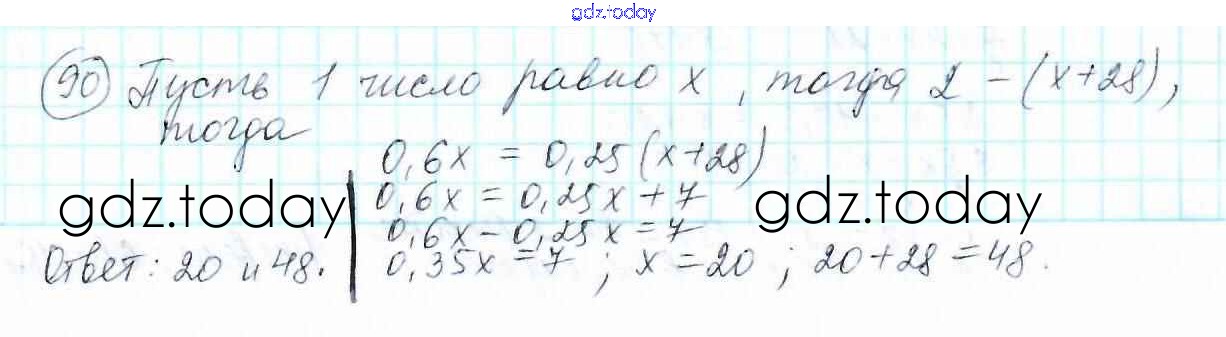 gdz.today
90 Пусть 1 число равно x, тогда 2 – (x+28),
тогда
0,6x = 0,25(x+28)
0,6x = 0,25x + 7
gdz.today
gdz.today
0,6x – 0,25x = 7
Ответ: 20 и 48.
0,35x = 7 ; x = 20 ; 20+28 = 48.